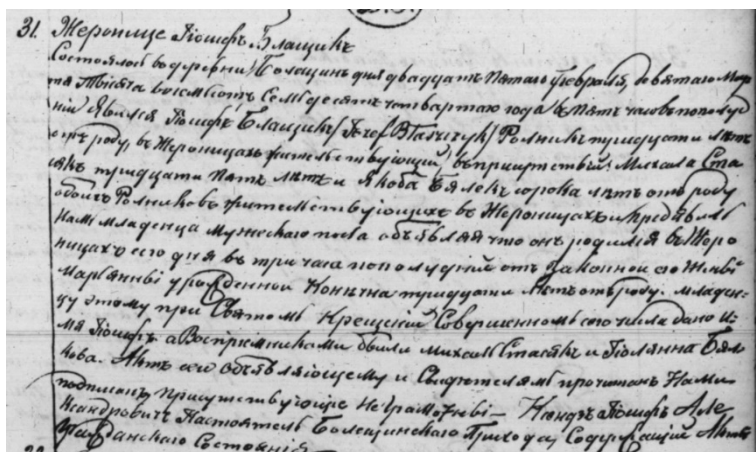 31. Жеронице Іосифъ Блащикъ
Состоялось в деревни Болещинъ дня двадцать пятаго февраля, девятаго Мар
та тысяча восемьсотъ семьдесятъ четвертаго года въ пять часовъ по полуд
ни явился Іосифъ Блащикъ /Józef Błaszczyk/ Рольникъ тридцати лѣтъ
отъ роду, въ Жероницахъ жительствующій въ присутствіи: Михала Ста
сякъ тридцати пять лѣтъ и Якоба Бялекъ сорока лѣтъ отъ роду
обоихъ Рольниковъ жительствующихъ въ Жероницахъ и предъявилъ
Намъ младенца мужескаго пола объявляя что онъ родился въ Жеро
ницахъ сего дня въ три часа по полудни отъ законной его жены
Маріянны урожденной Конечна тридцати лѣтъ отъ роду. младен
цу этому при Святомъ Крещеніи Совершенномъ сего числа дано и-
мя Іосифъ а Воспріемниками были Михалъ Стасякъ и Юліянна Бял
кова. Актъ сей объявляющему и Свидѣтелямъ прочитанъ Нами
подписанъ присутствующіе неграмотны — Ксендзъ Іосифъ Але
ксандровичъ Настоятель Болещинскаго Прихода, Содержащій Акты
Гражданскаго Состоянія